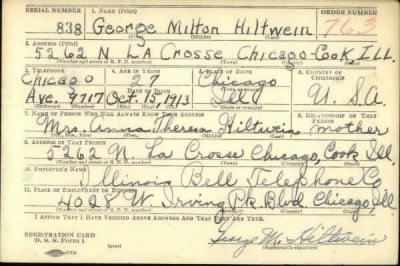 SERIAL NUMBER 1. NAME (Print) ORDER NUMBER
838 George Milton Hiltwein 763
(First) (Middle) (Last)
2. ADDRESS (Print)
5262 N LA Crosse Chicago-Cook ILL.
(Number and street or R. F. D. number) (Town) (County) (State)
3. TELEPHONE 4. AGE IN YEARS 5. PLACE OF BIRTH 6. COUNTRY OF CITIZENSHIP
Chicago 27 Chicago
DATE OF BIRTH
Ave. 9717 Oct. 15, 1913 Ill. U. S. A
7. NAME OF PERSON WHO WILL ALWAYS KNOW YOUR ADDRESS 8. RELATIONSHIP OF THAT PERSON
Mrs. Anna Theresa Hiltwein mother
9. ADDRESS OF THAT PERSON
5262 N. La Crosse Chicago, Cook Ill.
(Number and street or R. F. D. number) (Town) (County) (State)
10. EMPLOYER'S NAME
Illinois Bell Telephone Co
11. PLACE OF EMPLOYMENT OR BUSINESS
4028 W. Irving Pk. Blvd Chicago, Ill
(Number and street or R. F. D. number) (Town) (County) (State)
I AFFIRM THAT I HAVE VERIFIED ABOVE ANSWERS AND THAT THEY ARE TRUE.
REGISTRATION CARD
D. S. S. Form 1 George M. Hiltwein
(Registrant's signature)